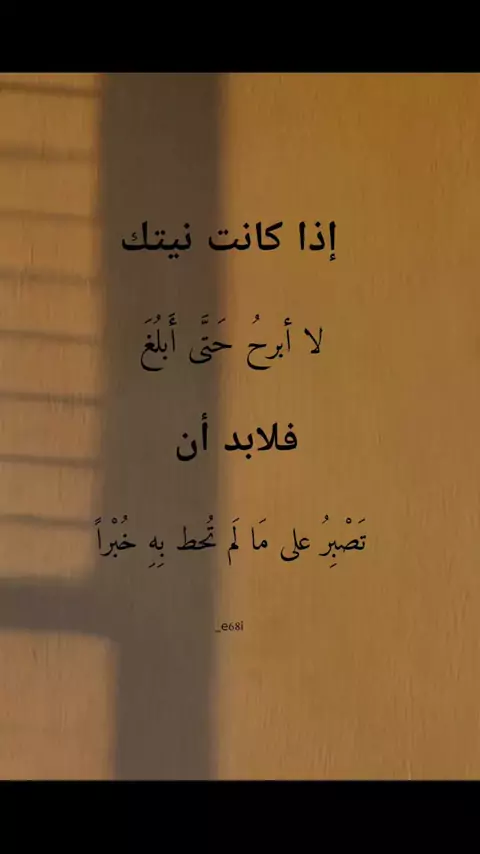 إذا كانت نيتك
لا أبرحُ حَتَّى أَبلُغَ
فلابد أن
تَصْبِرُ على مَا لَم تُحط بِهِ خُبْراً
_e68i